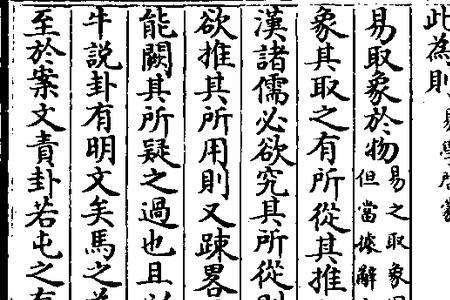 此為則易學啓蒙
易取象於物易之取象但當據解
象其取之有所從其推
漢諸儒必欲究其所從則
欲推其所用則又踈畧
能闕其所疑之過也且以
牛說卦有明文矣馬之為
至於案文責卦若屯之有